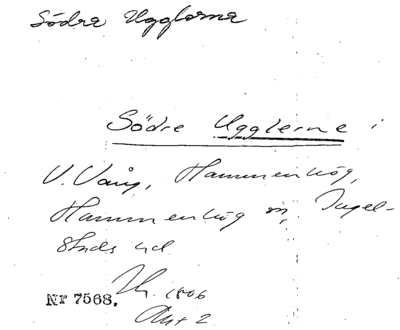 Södra Ugglorna
Södre Ugglerne i
V. Vång, Hammenhög,
Hammenhög sn, Ingel-
stads hd
1806
Nr 7568.
Akt 2